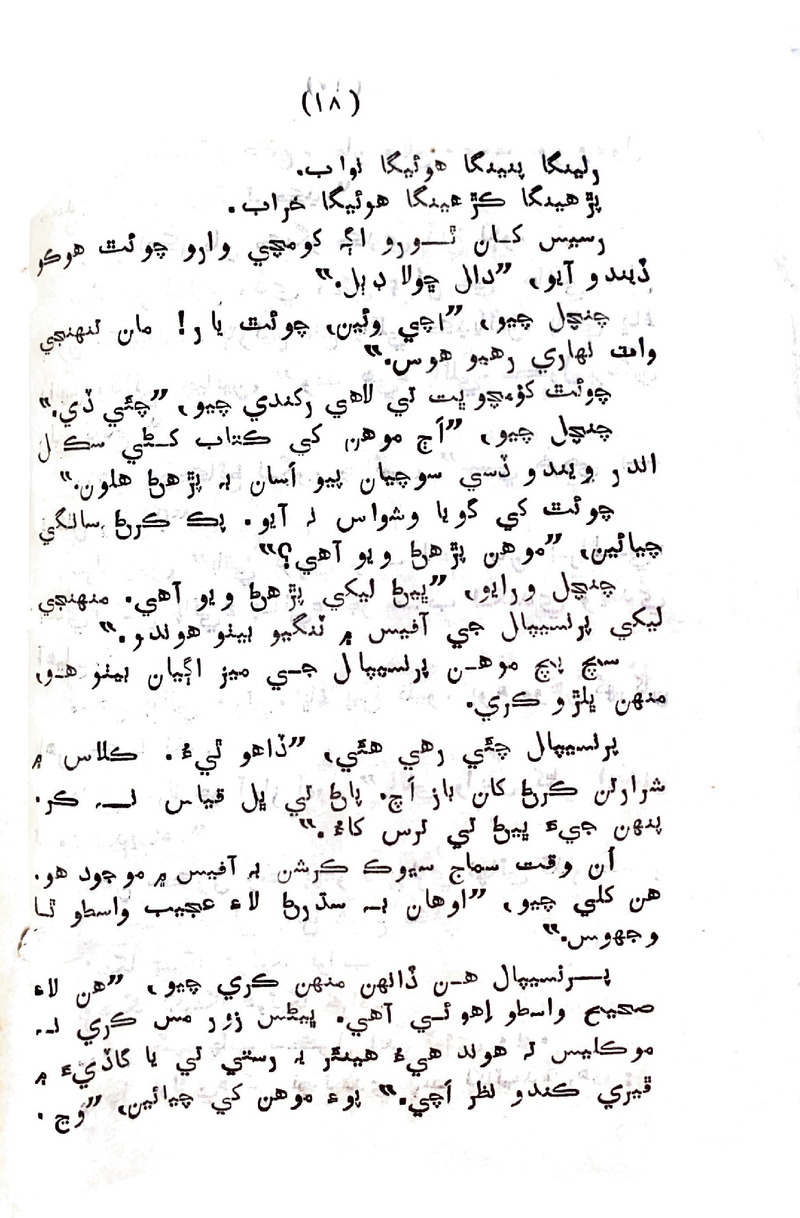 (١٨)
رلينگا پنيدنگا هوئيگا نواب.
پڙهينگا ڪڙهينگا هوئيگا خراب.
رسيس کان ٿورو اڳ کومچي وارو چوئٿ هوڪو
ڏيندو آيو، ”دال ڇولا ڊٻل.“
چنچل چيو، ”اچي وئين، چوئٿ يار! مان تنهنجي
واٽ نهاري رهيو هوس.“
چوئٿ کؤمچو ڀت تي لاهي رکندي چيو، ”چئي ڏي.“
چنچل چيو، ”اڄ موهن کي ڪتاب کڻي سڪول
اندر ويندو ڏسي سوچيان پيو اسان به پڙهڻ هلون.“
چوئٿ کي گويا وشواس نه آيو. پڪ ڪرڻ سانگي
چيائين، ”موهن پڙهڻ ويو آهي؟“
چنچل ورايو، ”ڀيڻ ليکي پڙهڻ ويو آهي. منهنجي
ليکي پرنسيپال جي آفيس ۾ ٽنگيو بيٺو هوندو.“
سچ پچ موهن پرنسيپال جي ميز اڳيان بيٺو هو،
منهن ڀلڙو ڪري.
پرنسيپال چئي رهي هئي، ”ڏاهو ٿيءُ. ڪلاس ۾
شرارتن ڪرڻ کان باز اچ. پاڻ تي ڀل قياس نه ڪر.
پنهن جيءَ ڀيڻ تي ترس کاءُ.“
اُن وقت سماج سيوڪ ڪرشن به آفيس ۾ موجود هو.
هن کلي چيو، ”اوهان به سڌرڻ لاءِ عجيب واسطو ٿا
وجهوس.“
پرنسيپال هن ڏانهن منهن ڪري چيو، ”هن لاءِ
صحيح واسطو اِهو ئي آهي. ڀيڻس زور مس ڪري نه
موڪليس ته هوند هيءُ هينئر به رستي تي يا گاڏيءَ ۾
ڦيري ڪندو نظر اچي.“ پوءِ موهن کي چيائين، ”وڃ.